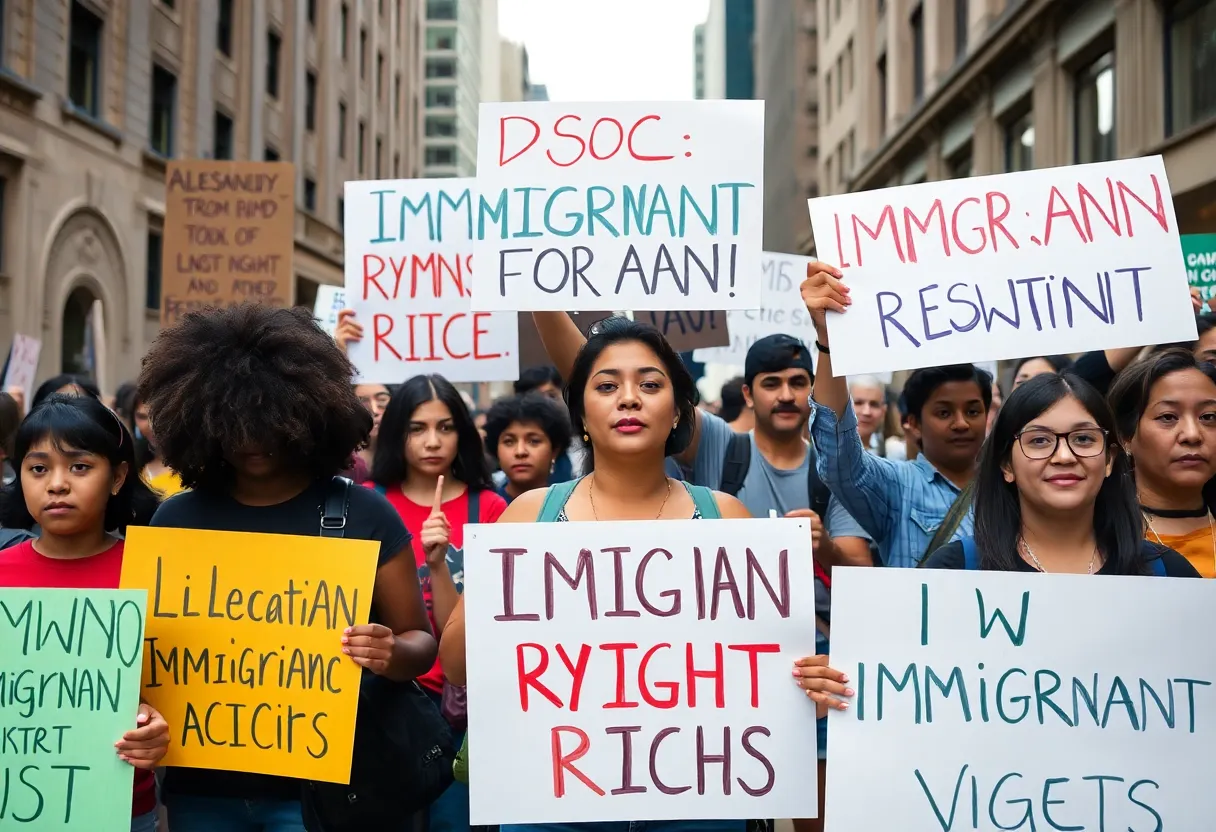 ALESANUIY
TROM
TODL OF
LAST NIGHT
AND
IMMIGRNANT
RYMNS
RIICE.
DSOC:
IMMIGRNANT
FOR AAN!
IMMGR:ANN
RESWTINIT
MWNO
MIGRNAN
KTRT
IST
LiLecatiAN
IMMIiGRiANC
ACICIrs
IMIGIAN
RYIGHT
RICHS
I W
IMMiGRNANT
VIGETS